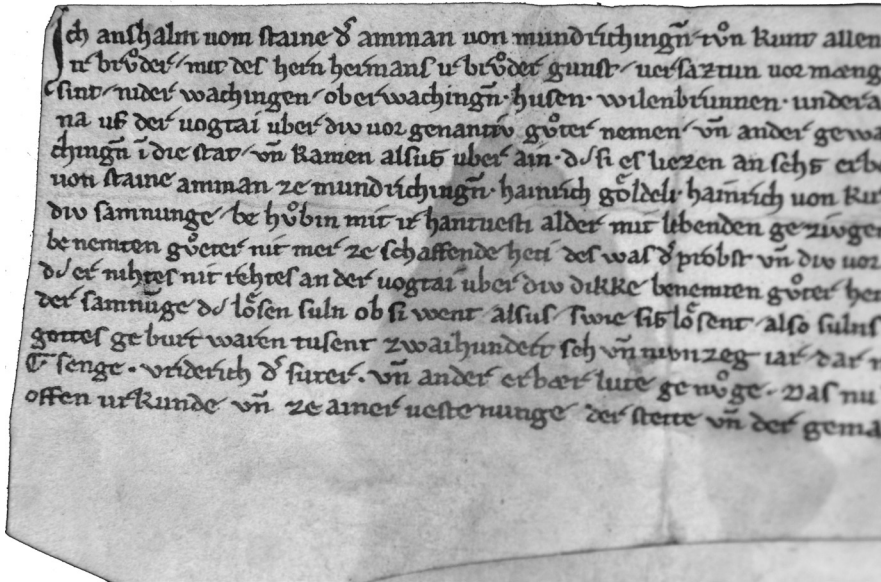 Ich anshalm vom staine d͛ amman von mundrichingn̄ tvͦn kunt allen
ir brvͦder mit des hern hermans ir brvͦder gunst versaztun vor mæng
sint nider wachingen ober wachingn̄ husen wilenbrunnen undera
na uf der vogtai uber diu vor genantiv gvͦter nemen vn̄ ander gewa
chingn̄ ī die stat vn̄ kamen alsus uber ain dc si es liezen an sehs erbe
von staine amman ze mundrichingn̄ hainrich goͤldeli hainrich von
div samnunge be hvͦbin mit ir hantvesti alder mit lebenden gezivgen
be nemten gvͦeter nit mer ze schaffende heti des was d͛ probst vn̄ div vor
dc er nihtes nit rehtes an der vogtai uber div dikke benemten gvͦter het
der samnūge dc loͤsen suln ob si went alsus swie sis loͤsent also sulns
gottes geburt waren tusent zwaihundert seh vn̄ nivnzeg iar dar n
senge vriderich d͛ suter vn̄ ander erbær lute genvͦge Das nu
offen urkunde vn̄ ze ainer vestenunge der stette vn̄ der gema